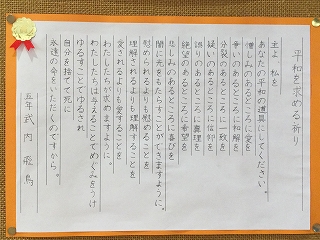 平和を求める祈り
主よ 私を
あなたの平和の道具にしてください。
憎しみのあるところに愛を
争いのあるところに和解を
分裂のあるところに一致を
疑いのあるところに信仰を
誤りのあるところに真理を
絶望のあるところに希望を
悲しみのあるところに喜びを
闇に光をもたらすことができますように。
慰められるよりも慰めることを
理解されるよりも理解することを
愛されるよりも愛することを
わたしたちが求めますように。
わたしたちは与えることでめぐみをうけ
ゆるすことでゆるされ
自分を捨てて死に
永遠の命をいただくのですから。
五年 武内 飛鳥